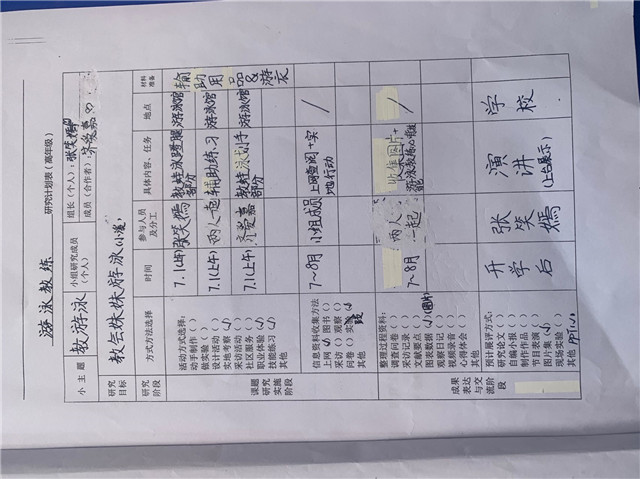 游泳教练
研究计划表（高年级）
小主题
教游泳
小组研究成员（个人）
组长（个人）：张笑嫣
成员（合作者）：齐爱嘉
研究目标
教会妹妹游泳
研究阶段
方式方法选择
时间
参与人员及分工
具体内容、任务
地点
材料准备
课题研究实施阶段
活动方式选择：
动手制作（ ）
做实验（ ）
设计活动（ ）
实地考察（√）
采访活动（ ）
社区服务（ ）
职业体验（√）
技能练习（√）
其他
7.1(上午)
张笑嫣
教蛙泳蹬腿部份
游泳馆
7.1(上午)
两人一起
辅助练习
游泳馆
7.1(上午)
齐爱嘉
教蛙泳划手部份
游泳馆
辅助用品&游衣
信息资料收集方法
上网（√）图书（ ）
采访（ ）观察（ ）
问卷（ ）实践（√）
其他
7~8月
小组成员
上网查阅+实地行动
/
整理过程资料：
调查问卷（ ）
采访记录（ ）
文献要点（ ）
图表数据（√）(图片)
观察日记（ ）
视频录音（ ）
心得体会（ ）
其他
7~8月
两人一起
收集图片+
/
成果表达与交流阶段
预计展评方式：
研究论文（ ）
自编小报（ ）
制作作品（ ）
节目表演（ ）
图片集（√）
现场实验（ ）
其他
开学后
张笑嫣
演讲
(上台展示)
学校